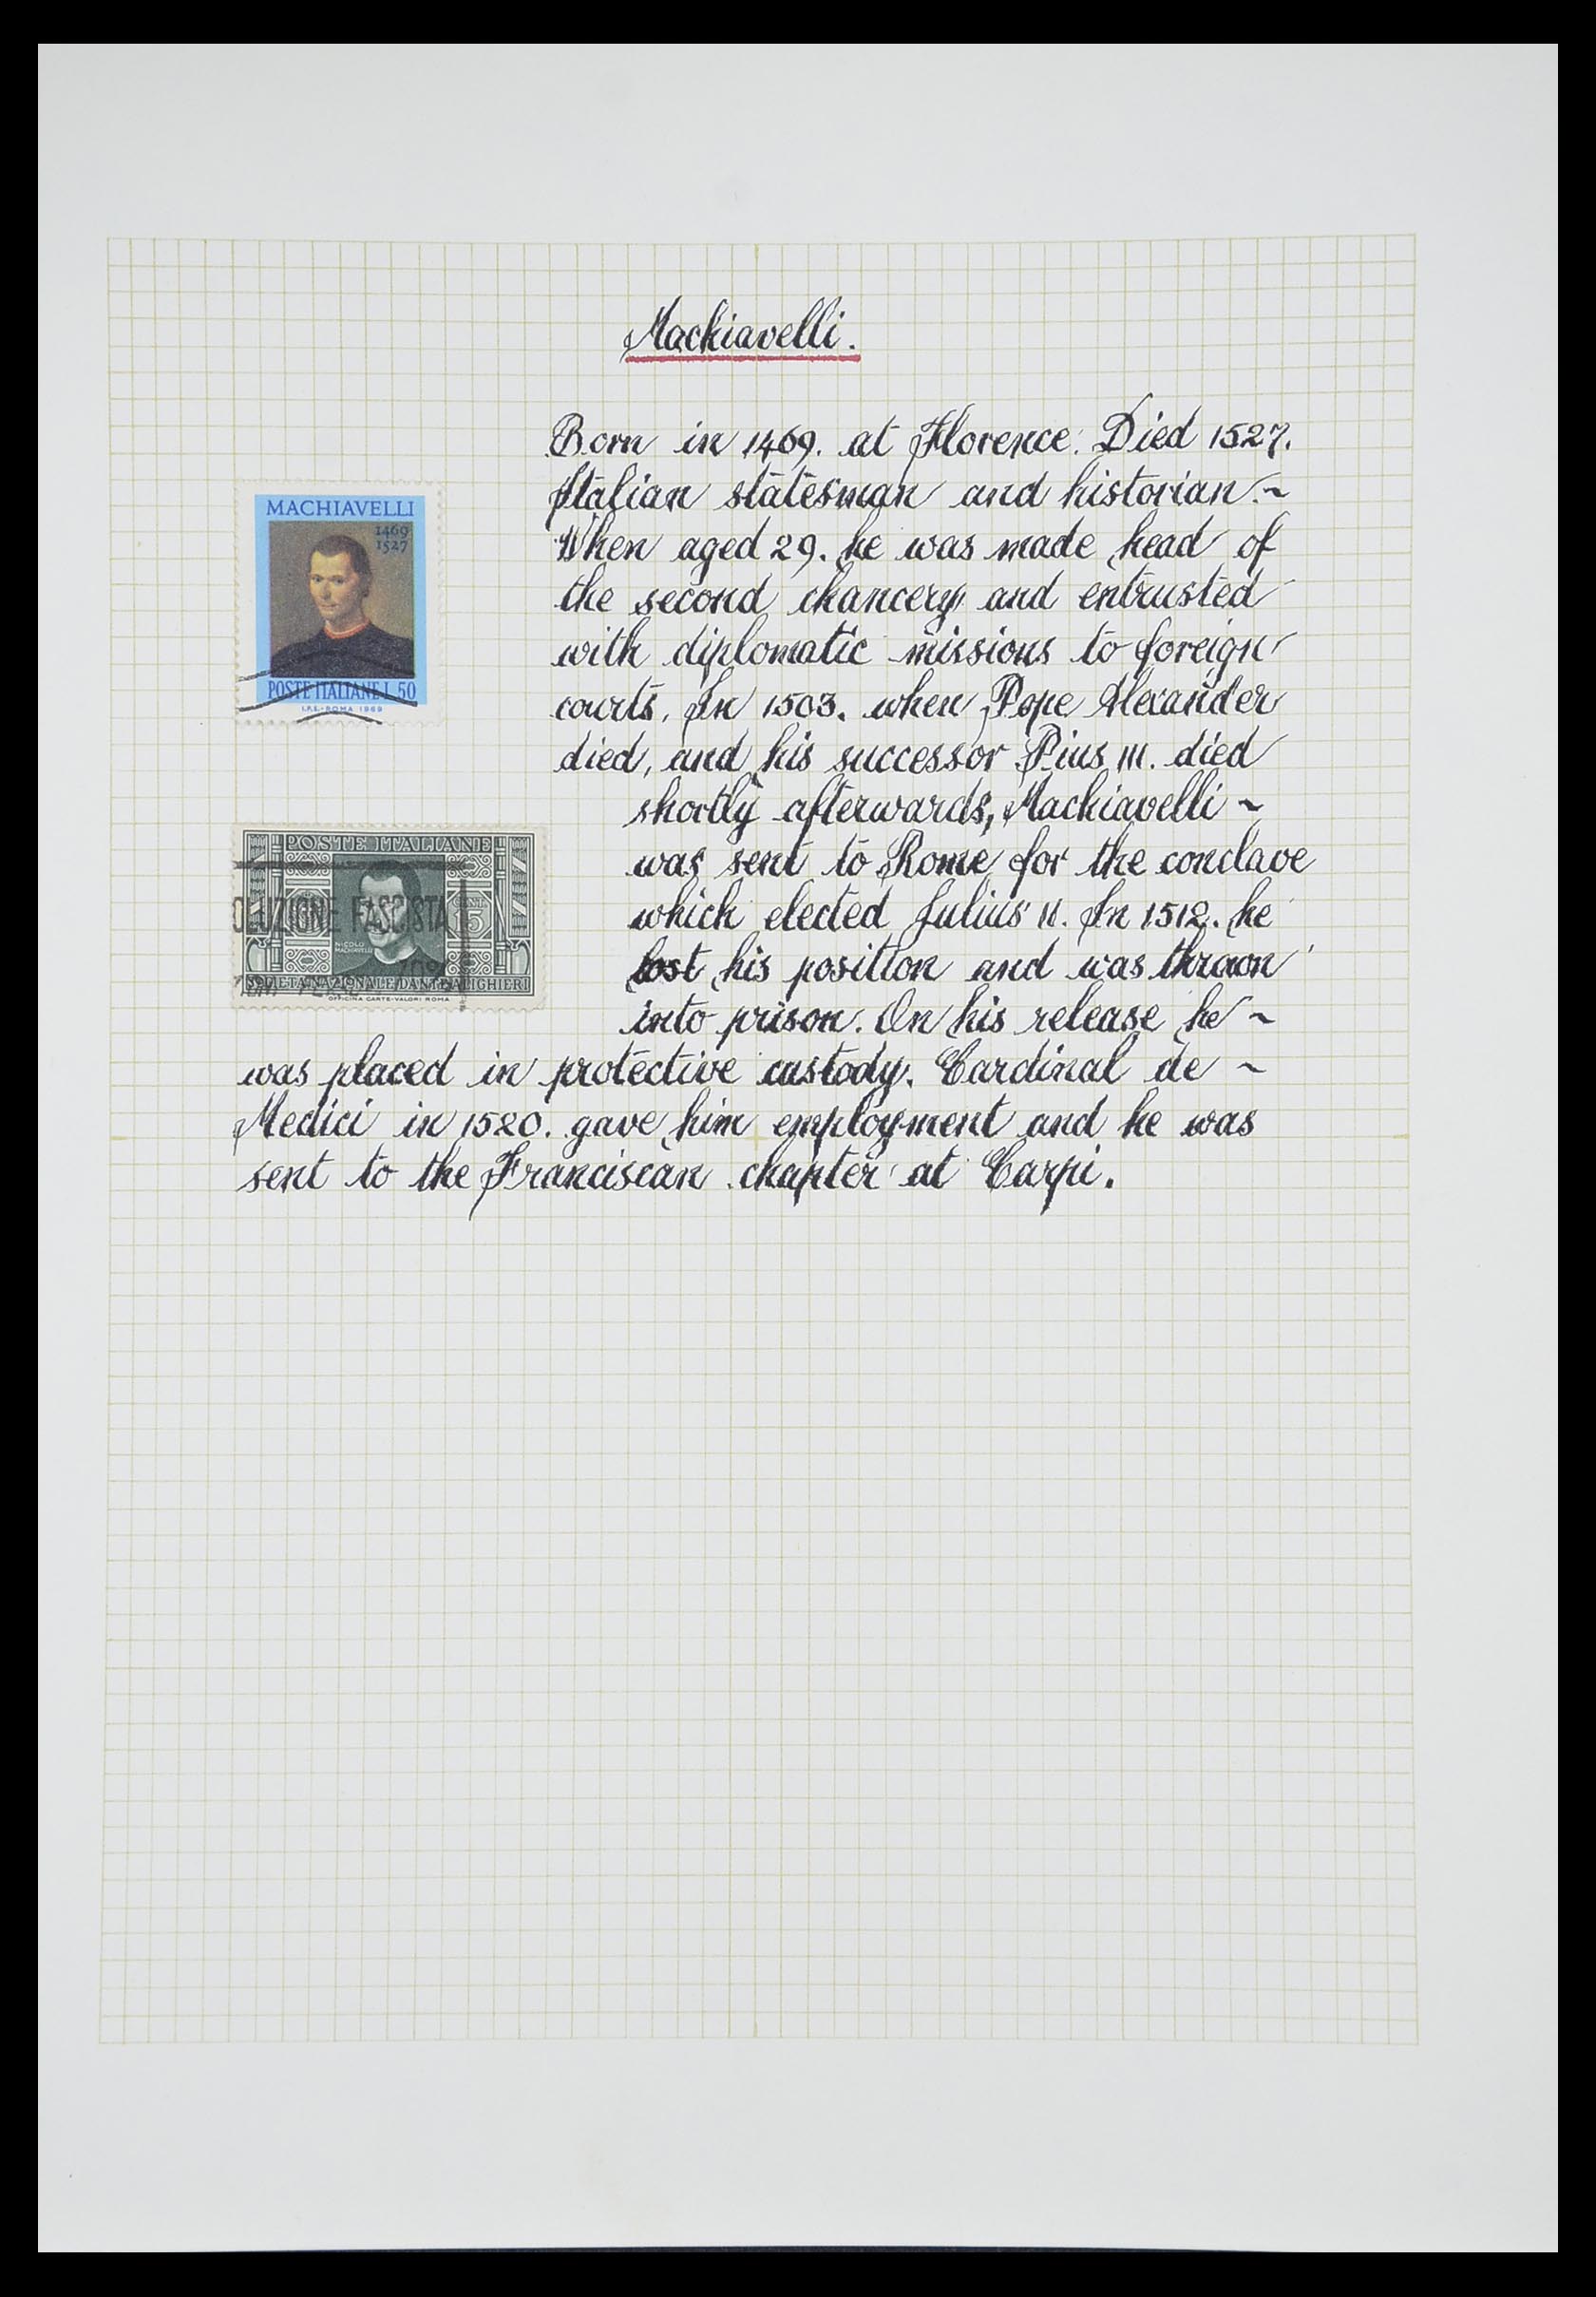 Machiavelli.
Born in 1469. at Florence. Died 1527.
Italian statesman and historian.~
When aged 29. he was made head of
the second chancery and entrusted
with diplomatic missions to foreign
courts. In 1503. when Pope Alexander
died, and his successor Pius III. died
shortly afterwards, Machiavelli ~
was sent to Rome for the conclave
which elected Julius II. In 1512. he
lost his position and was thrown
into prison. On his release he ~
was placed in protective custody. Cardinal de ~
Medici in 1520. gave him employment and he was
sent to the Franciscan chapter at Carpi.
MACHIAVELLI
1469
1527
POSTE ITALIANE L. 50
I.P.S.-ROMA 1969
POSTE ITALIANE
OLUZIONE FASCISTA
CENT. 15
NICOLO
MACHIAVELLI
SOCIETA NAZIONALE DANTE ALIGHIERI
OFFICINA CARTE-VALORI ROMA